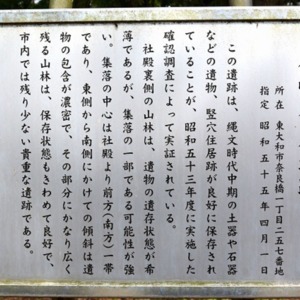 所在 東大和市奈良橋一丁目二五七番地
指定 昭和五十五年四月一日
この遺跡は、縄文時代中期の土器や石器
などの遺物、竪穴住居跡が良好に保存され
ていることが、昭和五十三年度に実施した
確認調査によって実証されている。
社殿裏側の山林は、遺物の遺存状態が希
薄であるが、集落の一部である可能性が強
い。集落の中心は社殿より前方(南方)一帯
であり、東側から南側にかけての傾斜は遺
物の包含が濃密で、その部分にかなり広く
残る山林は、保存状態もきわめて良好で、
市内では残り少ない貴重な遺跡である。